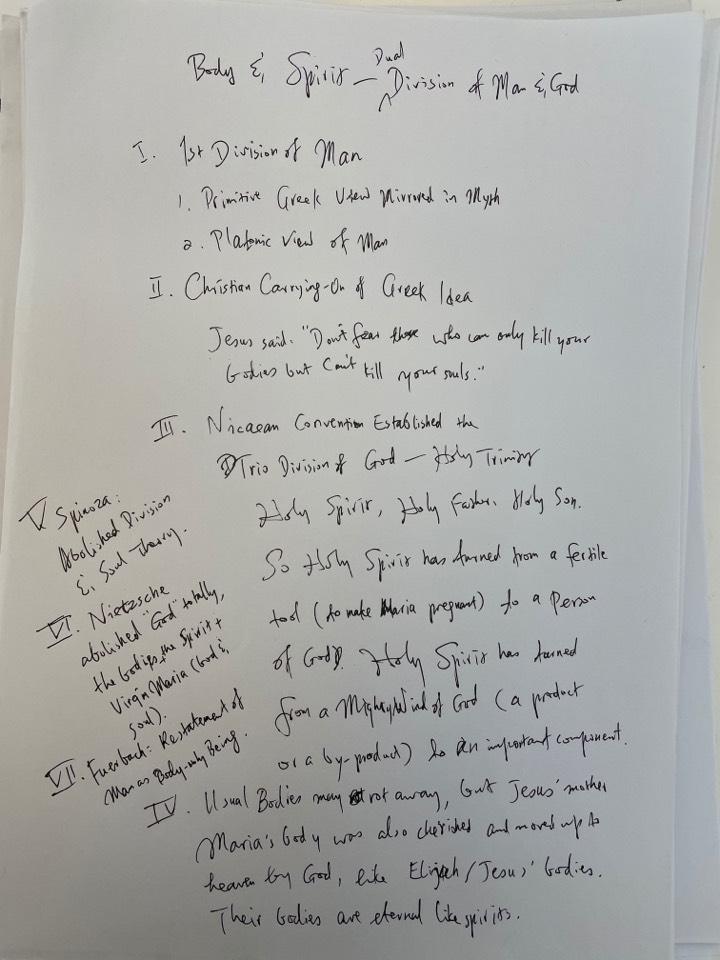 Body & Spirit — Dual Division of Man & God
I. 1st Division of Man
1. Primitive Greek View Mirrored in Myth
2. Platonic View of Man
II. Christian Carrying-On of Greek Idea
Jesus said: "Don't fear those who can only kill your
bodies but can't kill your souls."
III. Nicaean Convention Established the
Trio Division of God — Holy Trinity
Holy Spirit, Holy Father, Holy Son.
So Holy Spirit has turned from a fertile
tool (to make Maria pregnant) to a Person
of God. Holy Spirit has turned
from a Mighty Wind of God (a product
or a by-product) to an important component.
IV. Usual Bodies may rot away, but Jesus' mother
Maria's body was also cherished and moved up to
heaven by God, like Elijah/Jesus' bodies.
Their bodies are eternal like spirits.
V Spinoza:
Abolished Division
& Soul Theory.
VI. Nietzsche
abolished "God" totally,
the bodies, the Spirit +
Virgin Maria (God &
soul).
VII. Fuerbach: Restatement of
Man as Body-only Being.